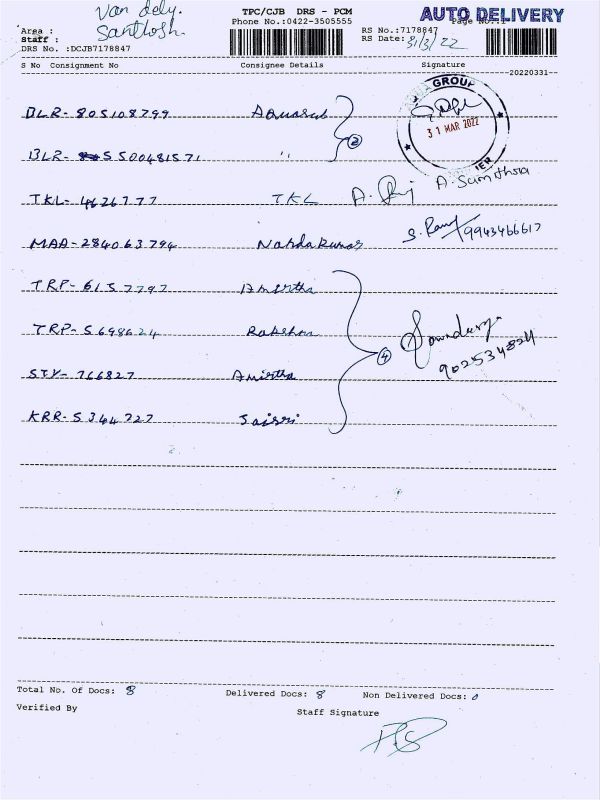 Van dely. TPC/CJB DRS - PCM AUTO DELIVERY
Area : Phone No.:0422-3505555 Page No.:1
Staff : Santhosh RS No.:7178847
DRS No. :DCJB7178847 RS Date: 31/3/22
S No Consignment No Consignee Details Signature
20220331
BLR- 805108799 Aquasub GROUP
31 MAR 2022
BLR- 5500481571 " 2
TKL- 4626777 TKL A. A. Sumithra
MAA- 284063794 Nandakumar S. Ram 9943466617
TRP- 6157797 Amirtha
TRP- 5698624 Rakshna 4 Soundarya
STY- 766827 Amirtha 902534824
KRR- 5344727 Jaisri
Total No. Of Docs: 8 Delivered Docs: 8 Non Delivered Docs: 0
Verified By Staff Signature